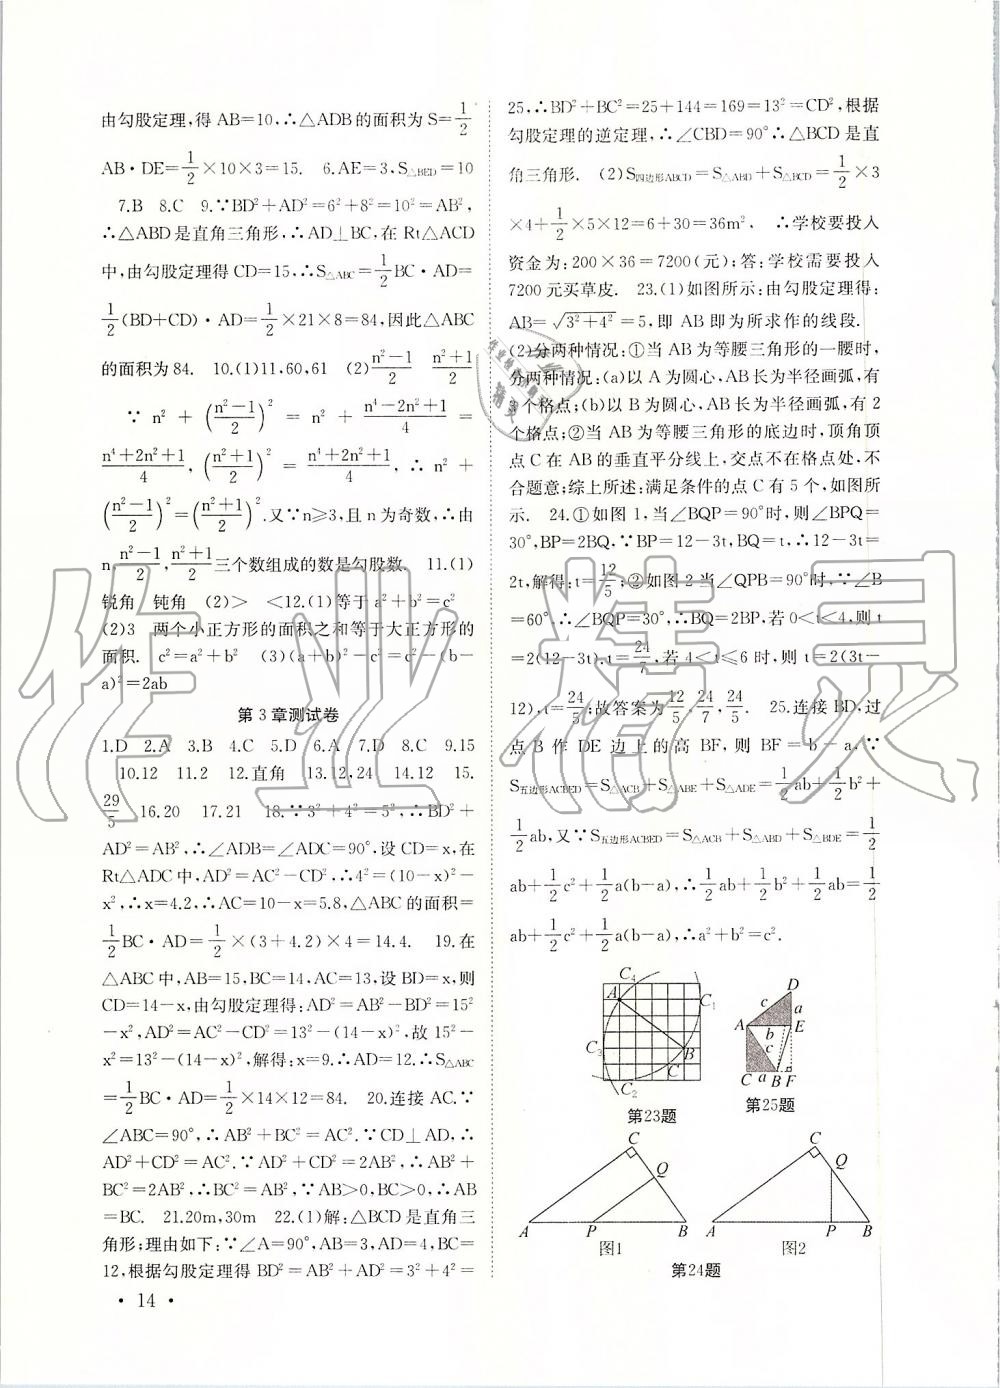 由勾股定理,得 AB=10,∴△ADB的面积为 S=1/2
AB·DE=1/2×10×3=15. 6.AE=3,S△BED=10
7.B 8.C 9.∵BD²+AD²=6²+8²=10²=AB²,
∴△ABD是直角三角形,∴AD⊥BC,在Rt△ACD
中,由勾股定理得CD=15,∴S△ABC=1/2BC·AD=
1/2(BD+CD)·AD=1/2×21×8=84,因此△ABC
的面积为84. 10.(1)11,60,61 (2)(n²-1)/2 (n²+1)/2
∵ n² + ((n²-1)/2)² = n² + (n⁴-2n²+1)/4 =
(n⁴+2n²+1)/4, ((n²+1)/2)² = (n⁴+2n²+1)/4, ∴ n² +
((n²-1)/2)²=((n²+1)/2)².又∵n≥3,且n为奇数,∴由
n,(n²-1)/2,(n²+1)/2三个数组成的数是勾股数. 11.(1)
锐角 钝角 (2)> <12.(1)等于a²+b²=c²
(2)3 两个小正方形的面积之和等于大正方形的
面积. c²=a²+b² (3)(a+b)²-c²=c²-(b-
a)²=2ab
第3章测试卷
1.D 2.A 3.B 4.C 5.D 6.A 7.D 8.C 9.15
10.12 11.2 12.直角 13.12,24 14.12 15.
29/5 16.20 17.21 18.∵3²+4²=5²,∴BD²+
AD²=AB²,∴∠ADB=∠ADC=90°,设CD=x,在
Rt△ADC中,AD²=AC²-CD²,∴4²=(10-x)²-
x²,∴x=4.2,∴AC=10-x=5.8,△ABC的面积=
1/2BC·AD=1/2×(3+4.2)×4=14.4. 19.在
△ABC中,AB=15,BC=14,AC=13,设BD=x,则
CD=14-x,由勾股定理得:AD²=AB²-BD²=15²
-x²,AD²=AC²-CD²=13²-(14-x)²,故15²-
x²=13²-(14-x)²,解得:x=9.∴AD=12.∴S△ABC
=1/2BC·AD=1/2×14×12=84. 20.连接AC.∵
∠ABC=90°,∴AB²+BC²=AC².∵CD⊥AD,∴
AD²+CD²=AC².∵AD²+CD²=2AB²,∴AB²+
BC²=2AB²,∴BC²=AB²,∵AB>0,BC>0,∴AB
=BC. 21.20m,30m 22.(1)解:△BCD是直角三
角形;理由如下:∵∠A=90°,AB=3,AD=4,BC=
12,根据勾股定理得BD²=AB²+AD²=3²+4²=
· 14 ·
25,∴BD²+BC²=25+144=169=13²=CD²,根据
勾股定理的逆定理,∴∠CBD=90°∴△BCD是直
角三角形. (2)S四边形ABCD=S△ABD+S△BCD=1/2×3
×4+1/2×5×12=6+30=36m², ∴学校要投入
资金为:200×36=7200(元);答:学校需要投入
7200元买草皮. 23.(1)如图所示:由勾股定理得:
AB=√(3²+4²)=5,即AB即为所求作的线段.
(2)分两种情况:①当AB为等腰三角形的一腰时,
分两种情况:(a)以A为圆心,AB长为半径画弧,有
3个格点;(b)以B为圆心,AB长为半径画弧,有2
个格点;②当AB为等腰三角形的底边时,顶角顶
点C在AB的垂直平分线上,交点不在格点处,不
合题意;综上所述:满足条件的点C有5个,如图所
示. 24.①如图1,当∠BQP=90°时,则∠BPQ=
30°,BP=2BQ,∵BP=12-3t,BQ=t,∴12-3t=
2t,解得:t=12/5;②如图2当∠QPB=90°时,∵∠B
=60°,∴∠BQP=30°,∴BQ=2BP,若0<t<4,则t
=2(12-3t),t=24/7,若4<t≤6时,则t=2(3t-
12),t=24/5;故答案为12/5,24/7,24/5. 25.连接BD,过
点B作DE边上的高BF,则BF=b-a,∵
S五边形ACBED=S△ACB+S△ABE+S△ADE=1/2ab+1/2b²+
1/2ab,又∵S五边形ACBED=S△ACB+S△ABD+S△BDE=1/2
ab+1/2c²+1/2a(b-a),∴1/2ab+1/2b²+1/2ab=1/2
ab+1/2c²+1/2a(b-a),∴a²+b²=c².
C₄
A
C₁
C₃
B
C
C₂
第23题
D
c
a
A
E
b
c
C
a
B
F
第25题
C
Q
A
P
B
图1
C
Q
A
P
B
图2
第24题
作业精灵